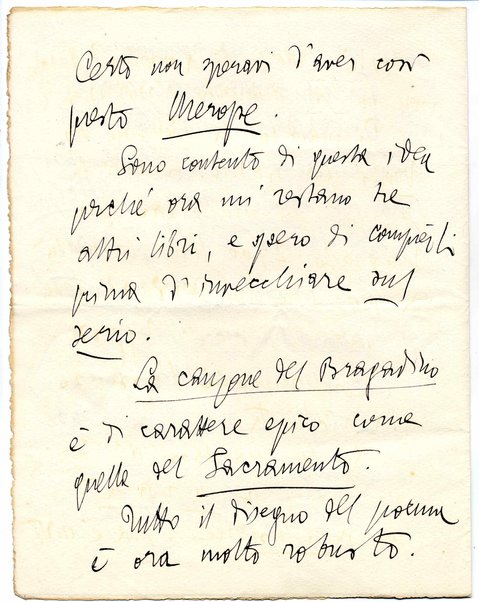 Certo non speravi d'aver così
presto Merope.
Sono contento di questa idea
perché ora mi restano tre
altri libri, e spero di compiergli
prima d'invecchiare sul
serio.
La canzone del Bragadino
è di carattere epico come
quella del Sacramento.
Tutto il disegno del poema
è ora molto robusto.